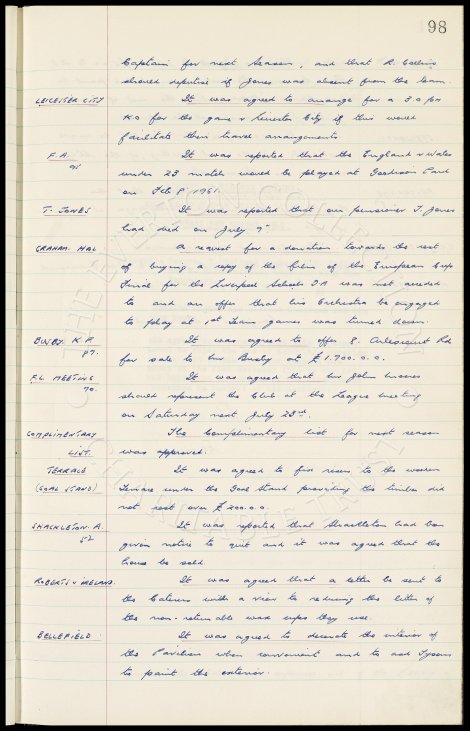 98
Captain for next season, and that R. Collins
should deputise if Jones was absent from the team.
LEICESTER CITY It was agreed to arrange for a 3.0 pm
KO for the game v Leicester City if this would
facilitate their travel arrangements
F.A. It was reported that the England v Wales
95 under 23 match would be played at Goodison Park
on Feb 8 1961.
T. JONES It was reported that our pensioner T. Jones
had died on July 7th.
GRAHAM. HAL A request for a donation towards the cost
of buying a copy of the film of the European Cup
Final for the Liverpool Schools F.A was not acceded
to and an offer that his Orchestra be engaged
to play at 1st Team games was turned down.
BUSBY. K.P. It was agreed to offer 8. Rd
87. for sale to Mr Busby at £1.700.0.0.
F.L. MEETING It was agreed that Mr John Moores
90. should represent the Club at the League meeting
on Saturday next July 23rd.
COMPLIMENTARY The Complimentary list for next season
LIST. was approved.
TERRACE It was agreed to fix risers to the wooden
(GOAL STAND) Terrace under the Goal Stand providing the timber did
not cost over £200.0.0.
SHACKLETON. A. It was reported that Shackleton had been
52 given notice to quit and it was agreed that the
house be sold.
ROBERTS & IRELAND. It was agreed that a letter be sent to
the Caterers with a view to reducing the litter of
the non-returnable wax cups they use.
BELLEFIELD. It was agreed to decorate the interior of
the Pavilion when convenient and to ask Tysons
to paint the exterior.
THE EVERTON COLLECTION
CHARITABLE TRUST